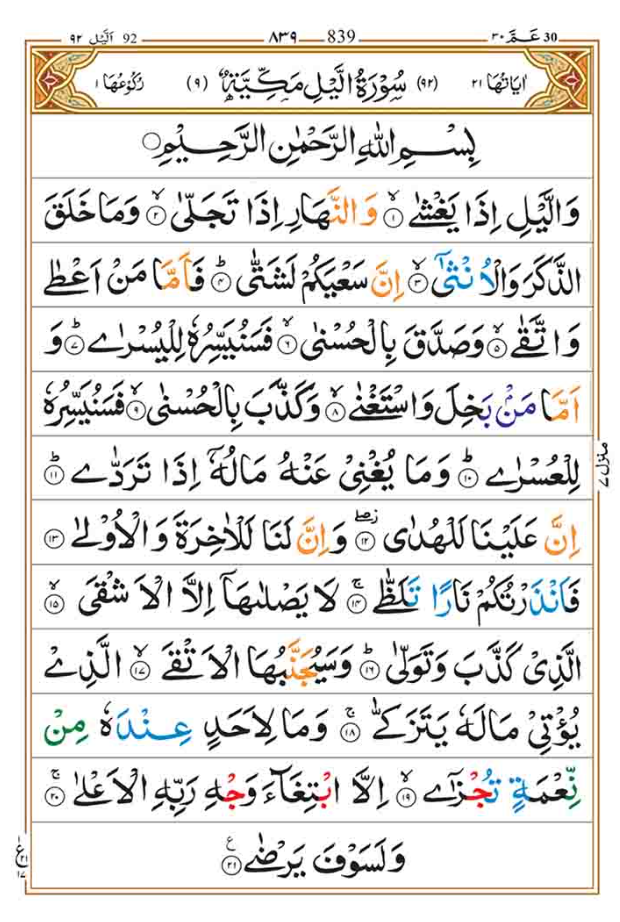 ٩٢ اَلَّيۡل 92 ٨٣٩ 839 ٣٠ عَـمَّ 30
اٰيَاتُهَا ٢١ (٩٢) سُوۡرَةُ الَّيۡلِ مَكِّيَّةٌ (٩) رُكُوۡعُهَا ١
بِسۡمِ اللّٰهِ الرَّحۡمٰنِ الرَّحِيۡمِ
وَالَّيۡلِ اِذَا يَغۡشٰى ۙ‏﴿۱﴾ وَالنَّهَارِ اِذَا تَجَلّٰى ۙ‏﴿۲﴾ وَمَا خَلَقَ
الذَّكَرَ وَالۡاُنۡثٰٓى ۙ‏﴿۳﴾ اِنَّ سَعۡيَكُمۡ لَشَتّٰى ؕ‏﴿۴﴾ فَاَمَّا مَنۡ اَعۡطٰى
وَاتَّقٰى ۙ‏﴿۵﴾ وَصَدَّقَ بِالۡحُسۡنٰى ۙ‏﴿۶﴾ فَسَنُيَسِّرُهٗ لِلۡيُسۡرٰى ؕ‏﴿۷﴾ وَ
اَمَّا مَنۡۢ بَخِلَ وَاسۡتَغۡنٰى ۙ‏﴿۸﴾ وَكَذَّبَ بِالۡحُسۡنٰى ۙ‏﴿۹﴾ فَسَنُيَسِّرُهٗ
لِلۡعُسۡرٰى ؕ‏﴿۱۰﴾ وَمَا يُغۡنِىۡ عَنۡهُ مَالُهٗۤ اِذَا تَرَدّٰى ؕ‏﴿۱۱﴾
اِنَّ عَلَيۡنَا لَلۡهُدٰى ۖ‏﴿۱۲﴾ وَاِنَّ لَنَا لَلۡاٰخِرَةَ وَالۡاُوۡلٰى‏ ﴿۱۳﴾
فَاَنۡذَرۡتُكُمۡ نَارًا تَلَظّٰى ۚ‏﴿۱۴﴾ لَا يَصۡلٰٮهَاۤ اِلَّا الۡاَشۡقَى ۙ‏﴿۱۵﴾
الَّذِىۡ كَذَّبَ وَتَوَلّٰى ؕ‏﴿۱۶﴾ وَسَيُجَنَّبُهَا الۡاَتۡقَى ۙ‏﴿۱۷﴾ الَّذِىۡ
يُؤۡتِىۡ مَالَهٗ يَتَزَكّٰى ۚ‏﴿۱۸﴾ وَمَا لِاَحَدٍ عِنۡدَهٗ مِنۡ
نِّعۡمَةٍ تُجۡزٰٓى ۙ‏﴿۱۹﴾ اِلَّا ابۡتِغَآءَ وَجۡهِ رَبِّهِ الۡاَعۡلٰى ۚ‏﴿۲۰﴾
وَلَسَوۡفَ يَرۡضٰى‏ ﴿۲۱﴾ ع
منزل ٧
ع ٢١ ١٧